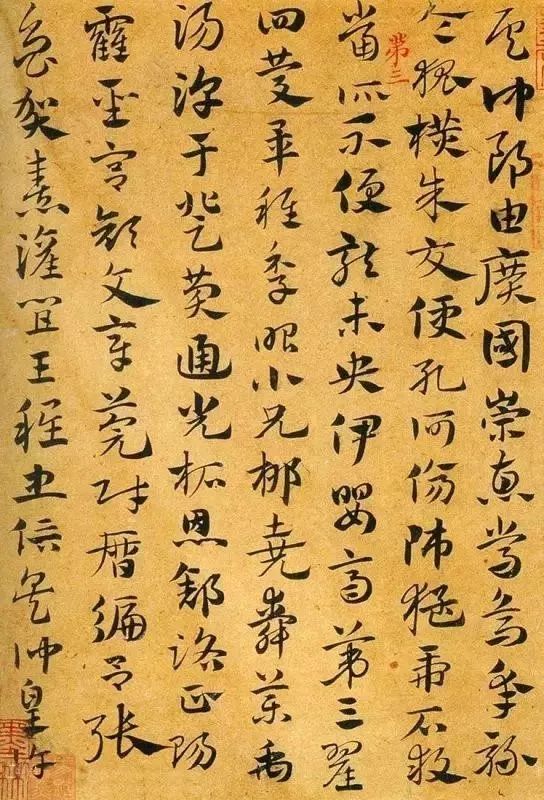 侯仲郎由廣國榮惠常烏承祿
令狐橫朱交便孔何傷師猛虎石敢
第三
當所不侵龍未央伊嬰齊第三翟
回慶畢稚季昭小兄柳堯舜藥禹
湯淳于登費通光柘恩舒洛正陽
霍聖宮顏文章莞財曆編呂張
魚賀憙灌宜王程忠信吳仲皇許